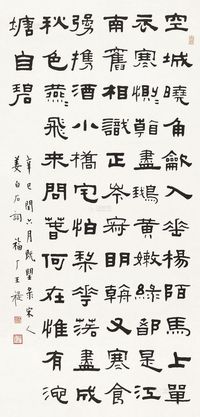 空城曉角龡入垂楊陌馬上單
衣寒惻〻看盡鵝黃嫩綠都是江
南舊相識正岑寂明朝又寒食
彊攜酒小橋宅怕梨華落盡成
秋色燕〻飛來問萅何在惟有池
塘自碧
辛巳閏六月既望彔宋人
姜白石詞 福厂王禔